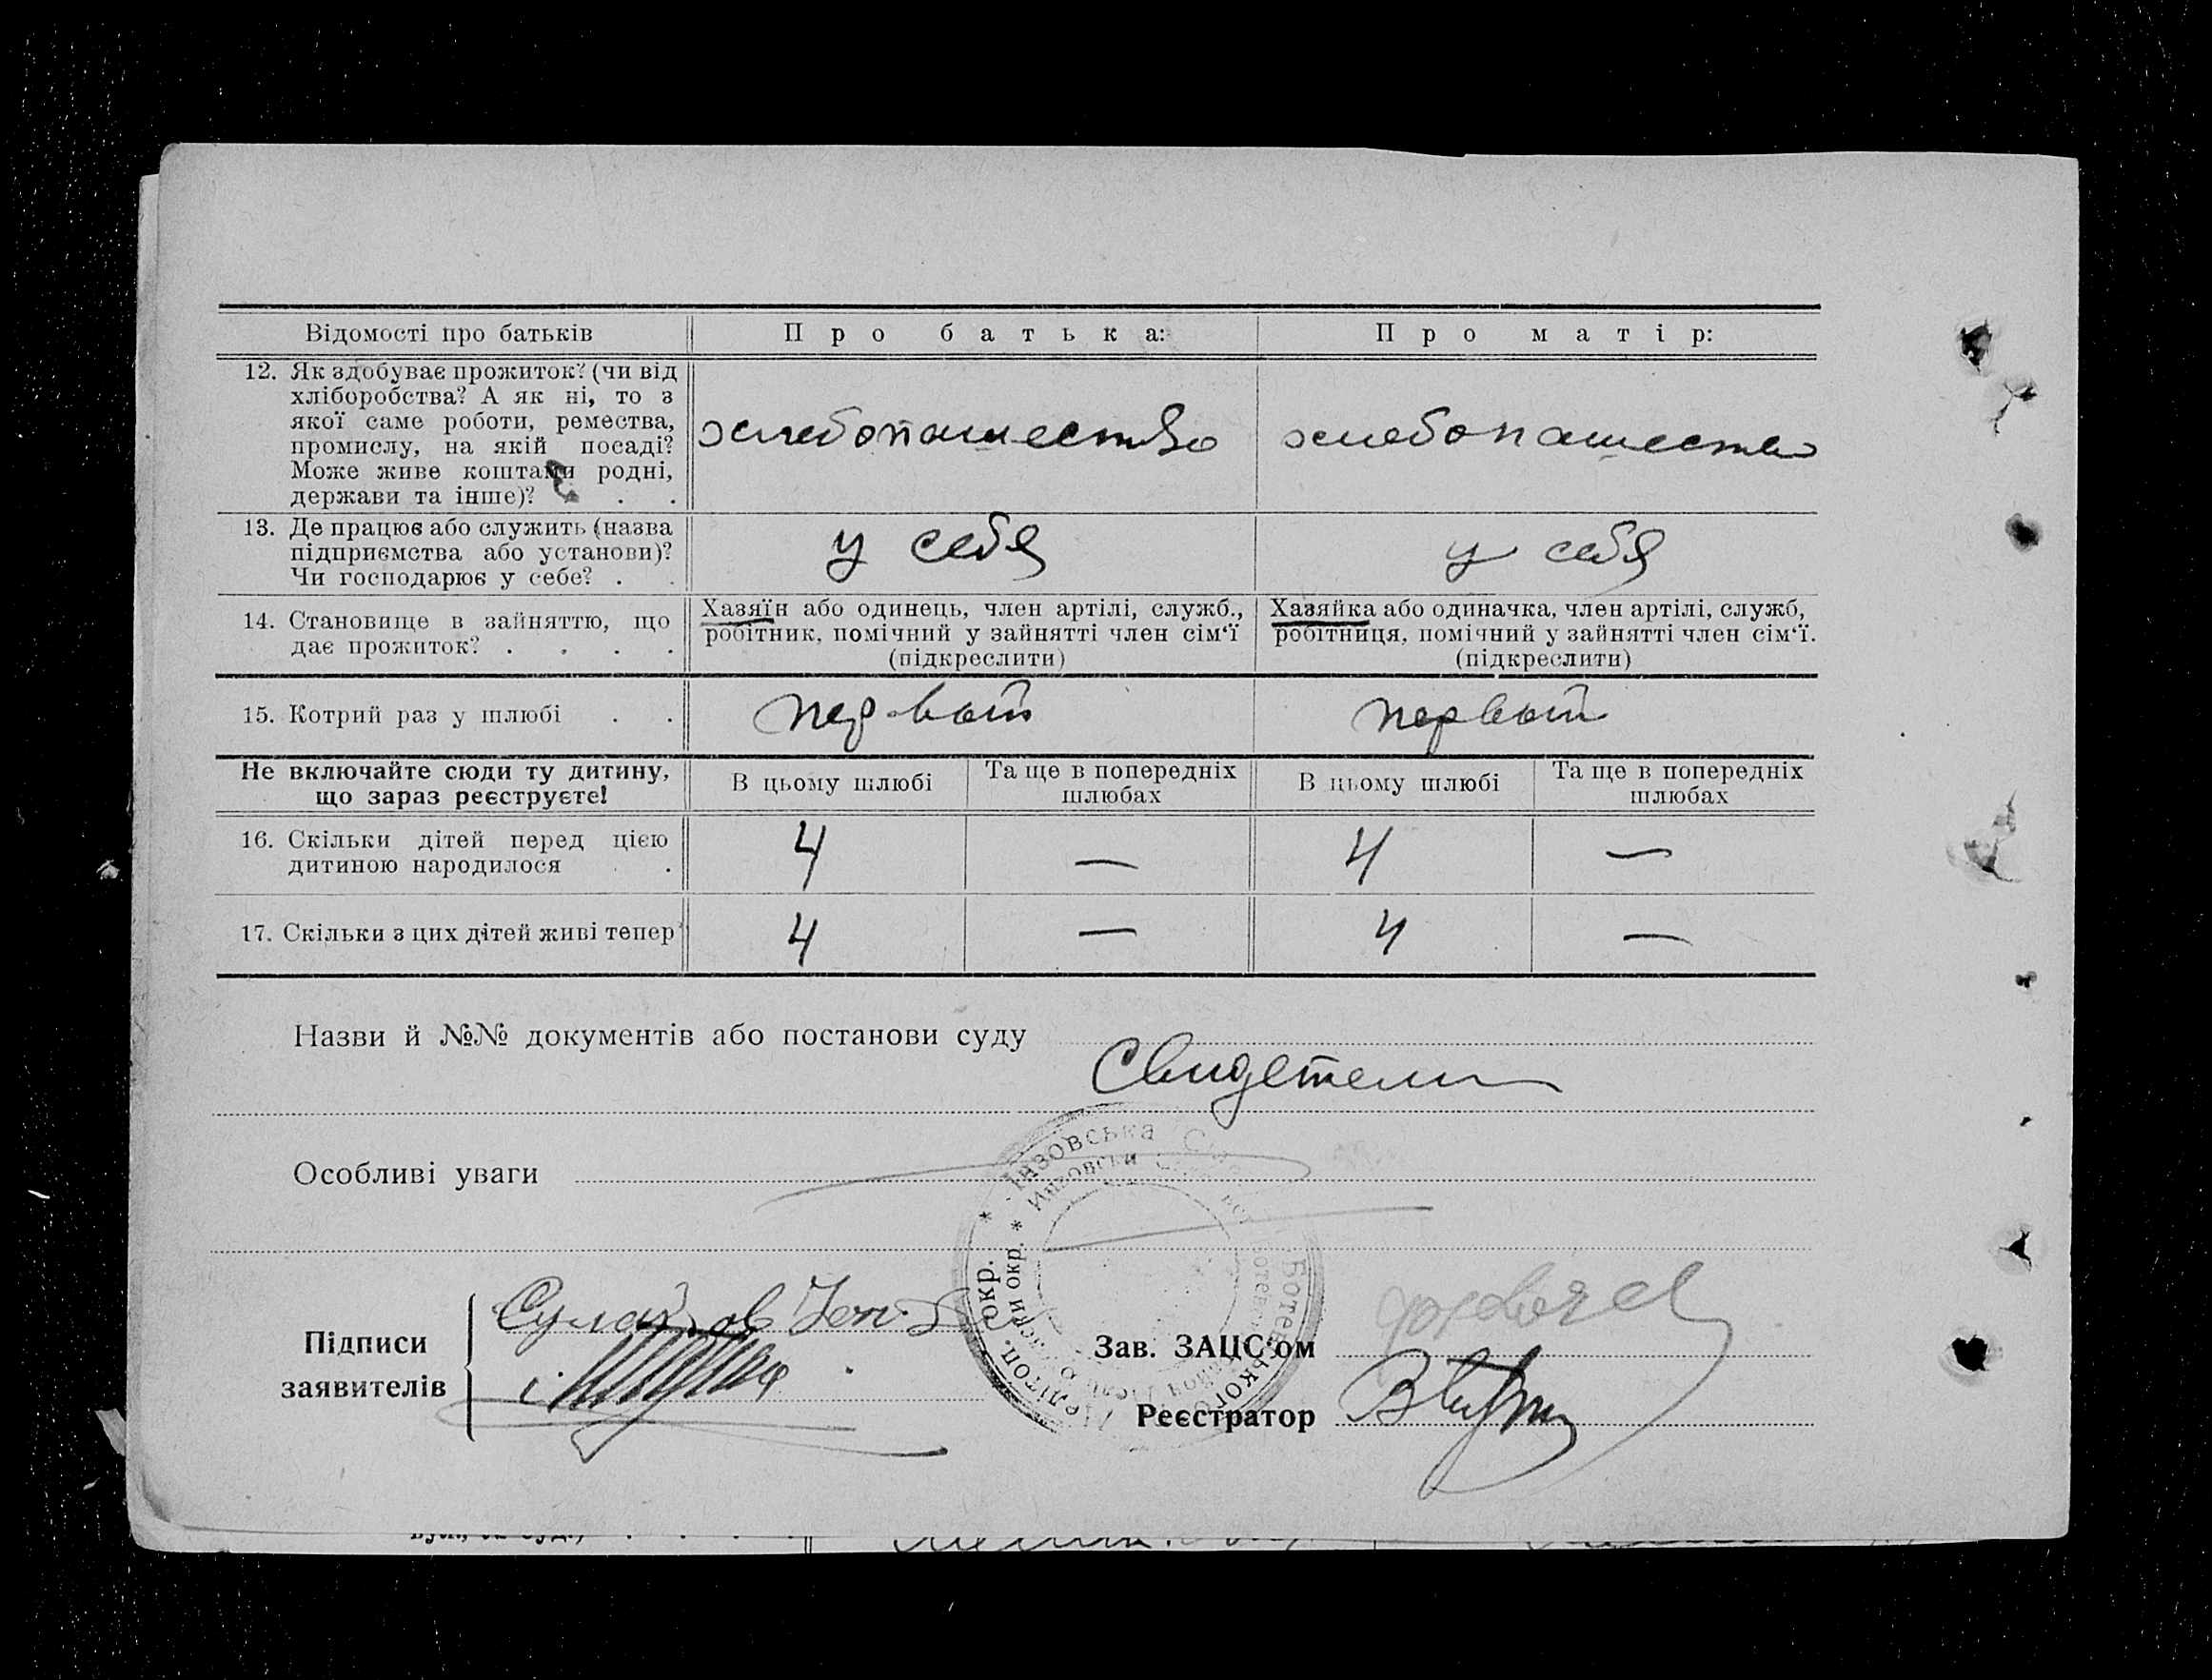 Відомості про батьків
Про батька:
Про матір:
12. Як здобуває прожиток? (чи від
хліборобства? А як ні, то з
якої саме роботи, ремества,
промислу, на якій посаді?
Може живе коштами родні,
держави та інше)? . . .
хлебопашество
хлебопашество
13. Де працює або служить (назва
підприємства або установи)?
Чи господарює у себе? . .
у себя
у себя
14. Становище в зайняттю, що
дає прожиток? . . . .
Хазяїн або одинець, член артілі, служб.,
робітник, помічний у зайнятті член сім‘ї
(підкреслити)
Хазяйка або одиначка, член артілі, служб,
робітниця, помічний у зайнятті член сім‘ї.
(підкреслити)
15. Котрий раз у шлюбі . .
первый
первый
Не включайте сюди ту дитину,
що зараз реєструєте!
В цьому шлюбі
Та ще в попередніх
шлюбах
В цьому шлюбі
Та ще в попередніх
шлюбах
16. Скільки дітей перед цією
дитиною народилося . .
4 — 4 —
17. Скільки з цих дітей живі тепер
4 — 4 —
Назви й №№ документів або постанови суду
Свидетели
Особливі уваги
Інзовська
окр.
Підписи
заявителів
Зав. ЗАЦС‘ом
Реєстратор